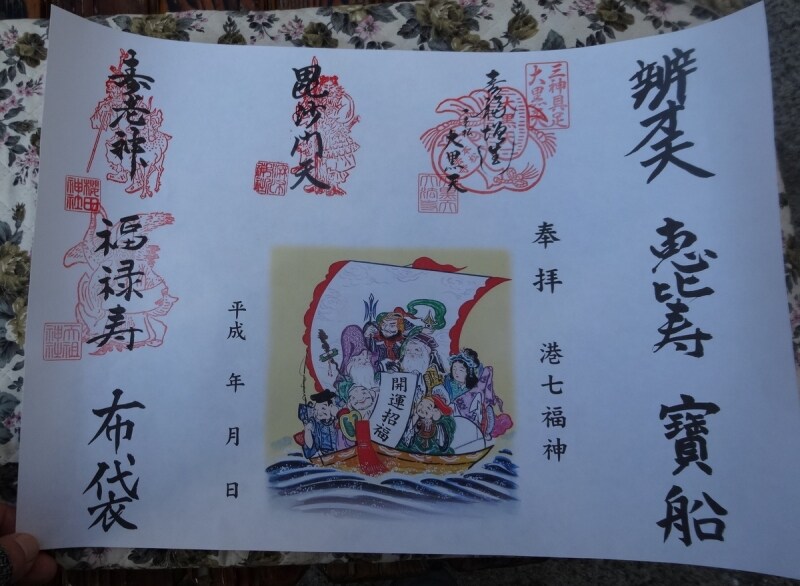 辨天
恵比寿
寶船
三神具足
大黒天
奉拝
港七福神
毘沙門天
寿老神
福禄寿
布袋
開運招福
平成　年　月　日